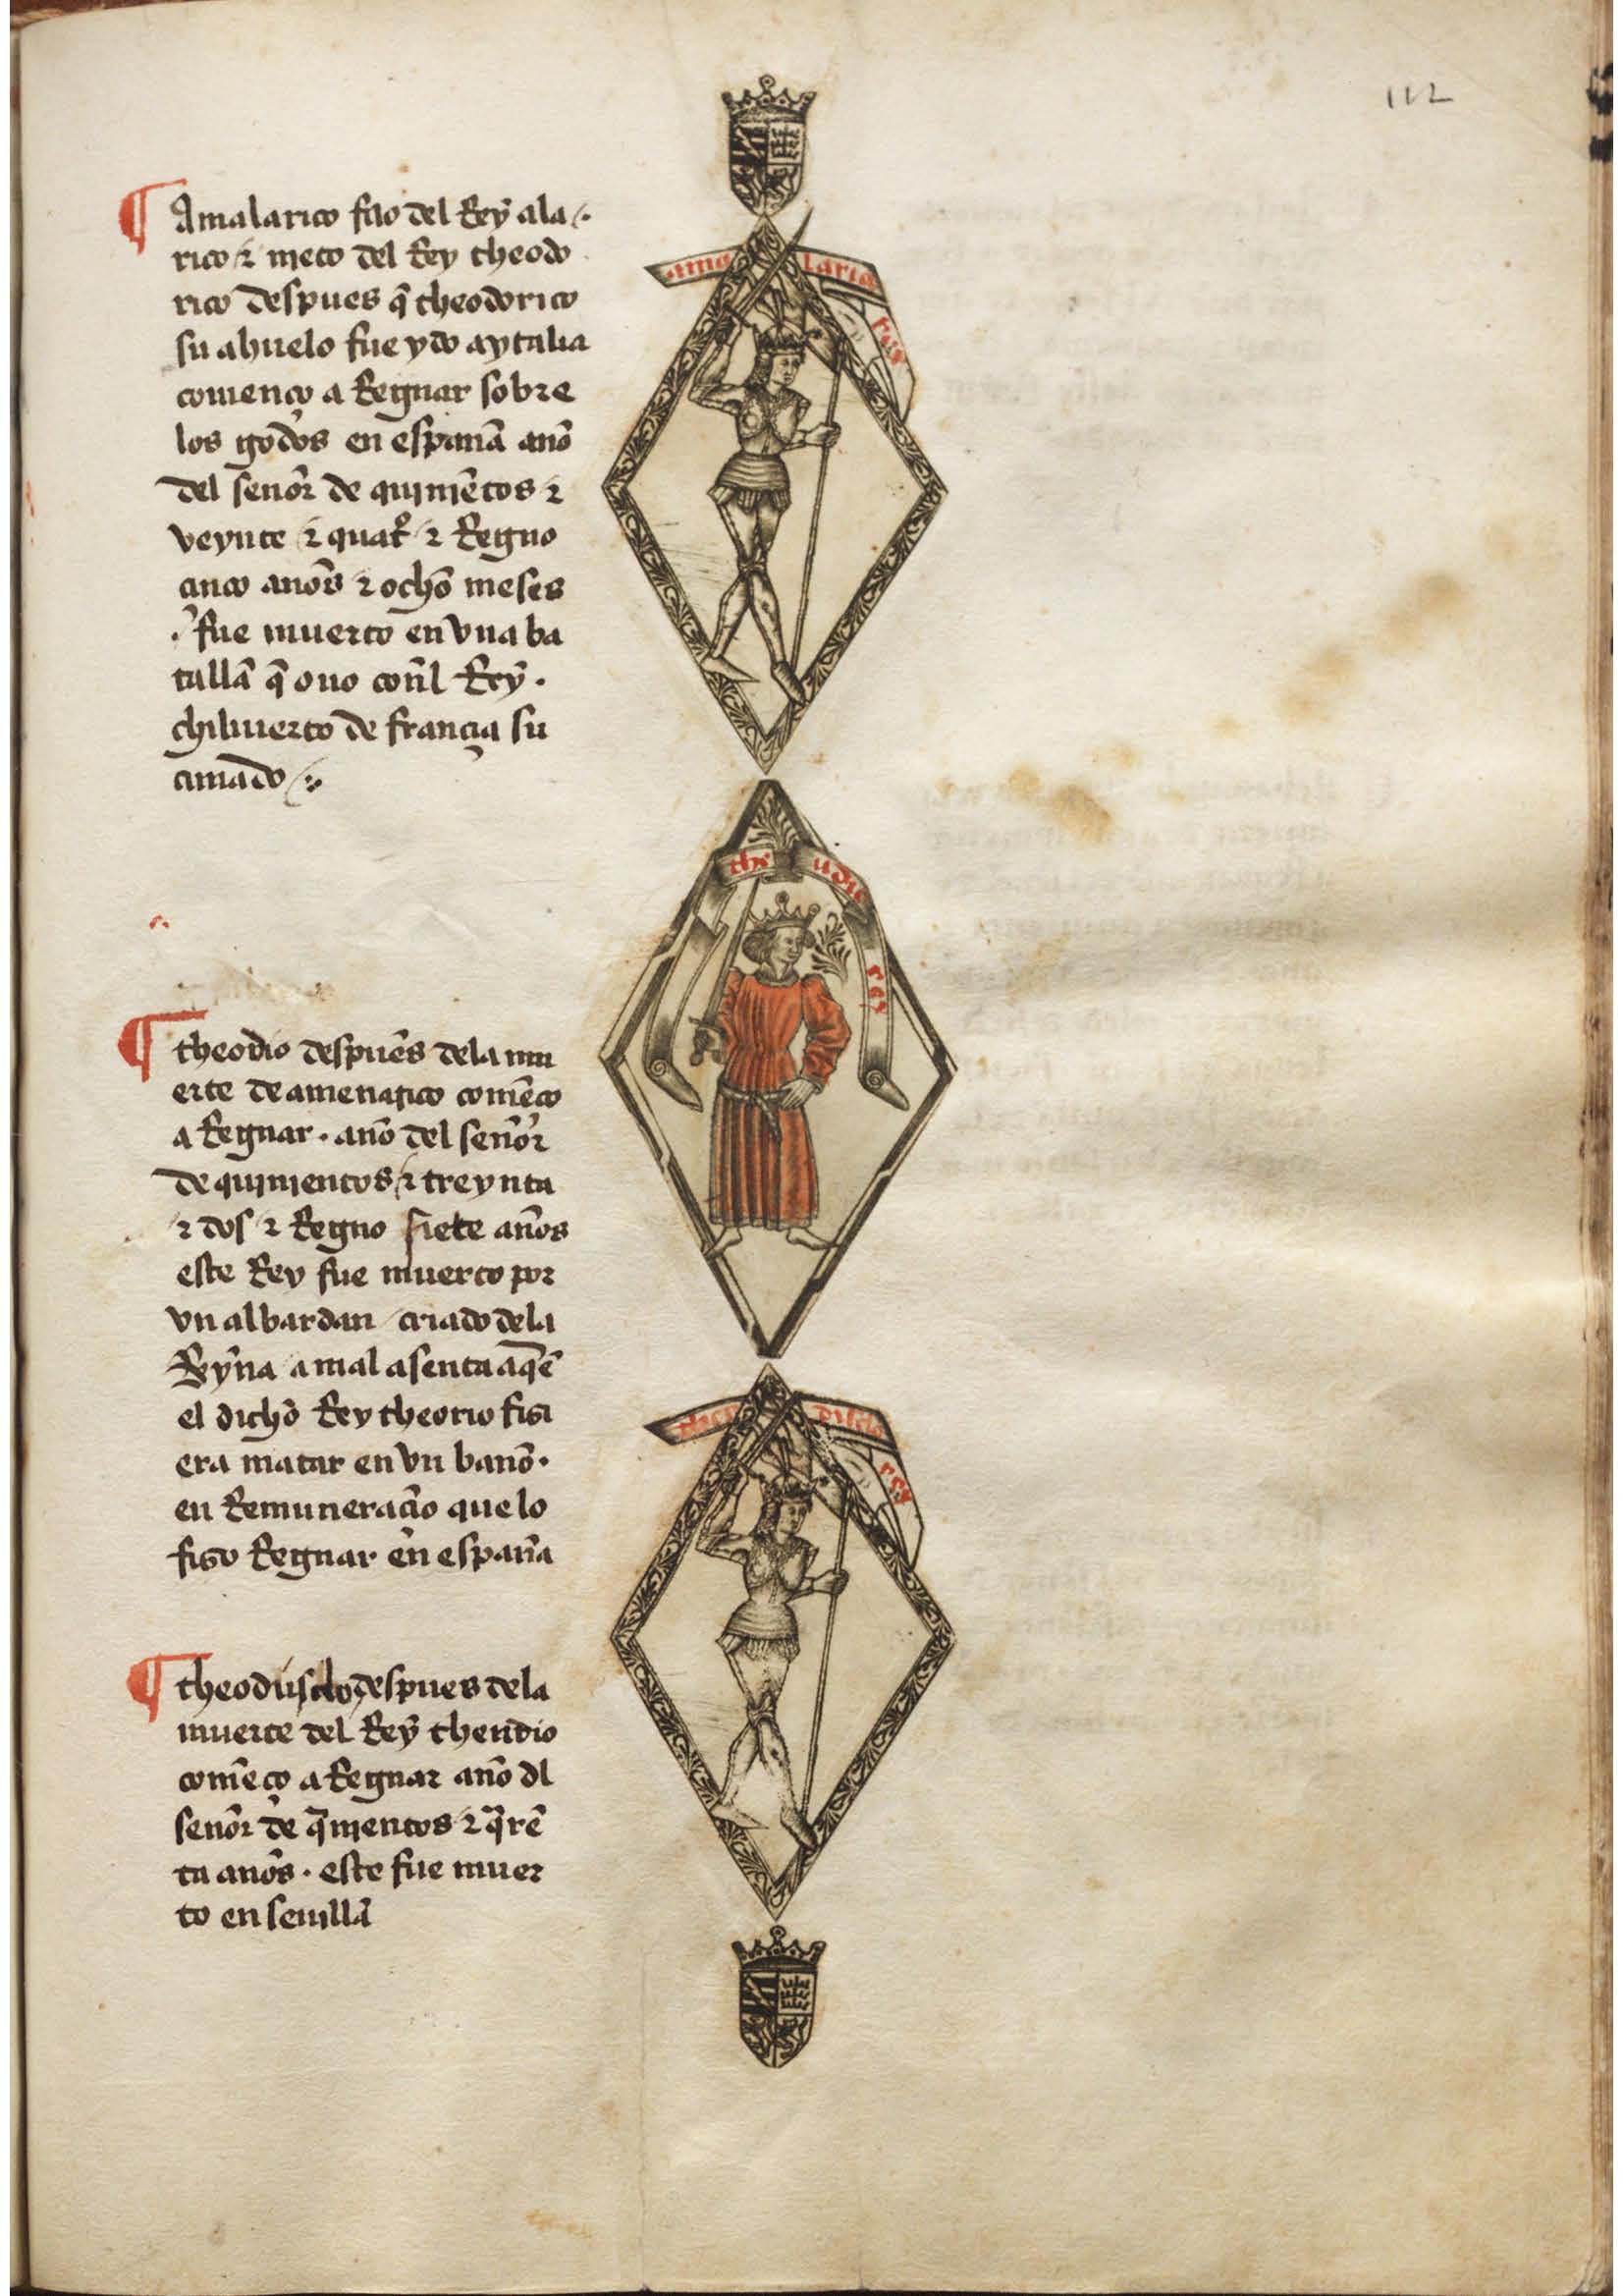 112
¶ Amalarico fijo del Rey ala
rico & nieto del Rey theodo
rico despues q̃ theodorico
su ahuelo fue ydo aytalia
comenco a Regnar sobre
los godos en espanã anõ
del senõr de quiniẽtos &
veynte & quatº & Regno
cinco anõs & ochõ meses
fue muerto en vna ba
tallã q̃ ouo coñl Rey.
chiluerto de francia su
cunado
ama laric
rey
¶ theodio despues dela mu
erte de amenarico comẽco
a Regnar. anõ del senõr
de quinientos & treynta
& dos & Regno siete anõs
este Rey fue muerto por
vn albardan criado dela
Reyna amalasenta aqẽ
el dichõ Rey theorio fisi
era matar en vn banõ.
en Remuneraciõ que lo
fiso Regnar en espanã
the udio
rey
¶ despues dela
muerte del Rey theudio
comẽço a Regnar anõ dl
senõr de q̃nientos & q̃rẽ
ta anõs. este fue muer
to en seuillã
theu disclo
rey